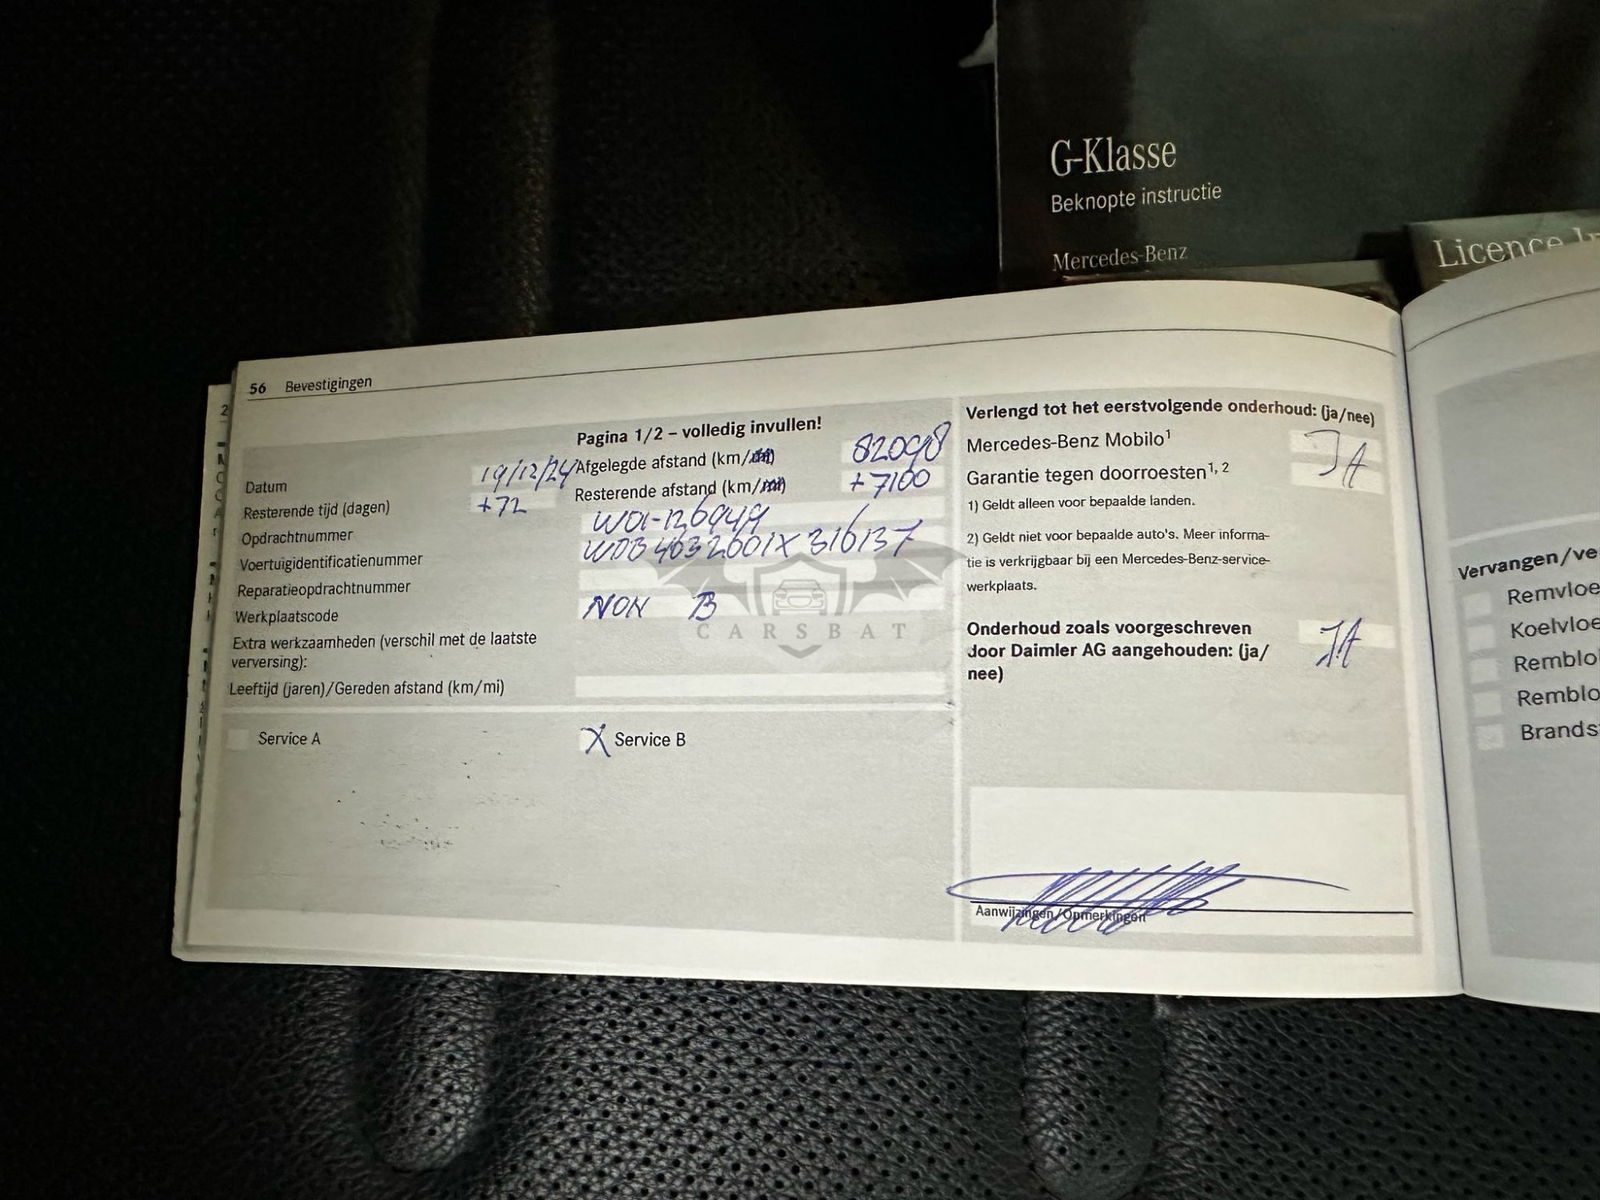 G-Klasse
Beknopte instructie
Mercedes-Benz
Licence
56 Bevestigingen
Pagina 1/2 – volledig invullen!
Datum 19/12/24
Afgelegde afstand (km/mi) 82098
Resterende tijd (dagen) +72
Resterende afstand (km/mi) +7100
Opdrachtnummer
Voertuigidentificatienummer WDB4632601X316137
Reparatieopdrachtnummer
Werkplaatscode NON B
Extra werkzaamheden (verschil met de laatste
verversing):
Leeftijd (jaren)/Gereden afstand (km/mi)
Service A
X Service B
Verlengd tot het eerstvolgende onderhoud: (ja/nee)
Mercedes-Benz Mobilo¹ JA
Garantie tegen doorroesten¹, ²
1) Geldt alleen voor bepaalde landen.
2) Geldt niet voor bepaalde auto's. Meer informa-
tie is verkrijgbaar bij een Mercedes-Benz-service-
werkplaats.
Onderhoud zoals voorgeschreven
door Daimler AG aangehouden: (ja/
nee) JA
Aanwijzingen/Opmerkingen
Vervangen/ve
Remvloe
Koelvloe
Remblo
Remblo
Brands
CARSBAT